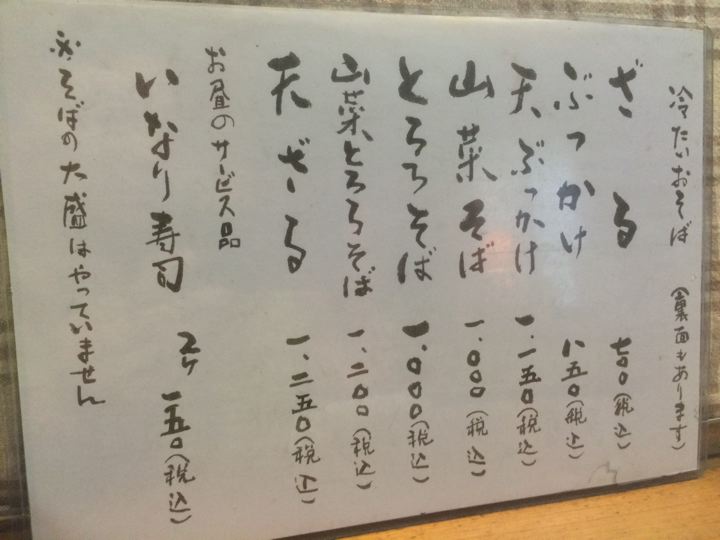 冷たいおそば (裏面もあります)
ざる 七〇〇(税込)
ぶっかけ 八五〇(税込)
天ぶっかけ 一.一五〇(税込)
山菜そば 一.〇〇〇(税込)
とろろそば 一.〇〇〇(税込)
山菜とろろそば 一.二〇〇(税込)
天ざる 一.二五〇(税込)
お昼のサービス品
いなり寿司 2ケ 一五〇(税込)
※そばの大盛はやっていません